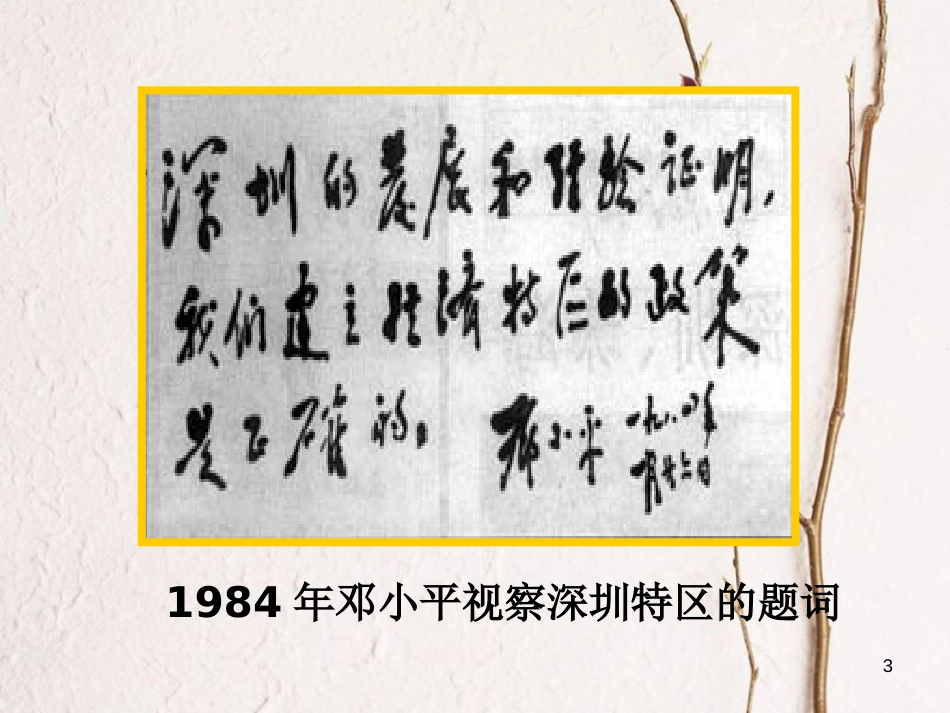 深圳的发展和经验证明，
我们建立经济特区的政策
是正确的。
邓小平 一九八四年
一月廿六日
1984 年邓小平视察深圳特区的题词
3